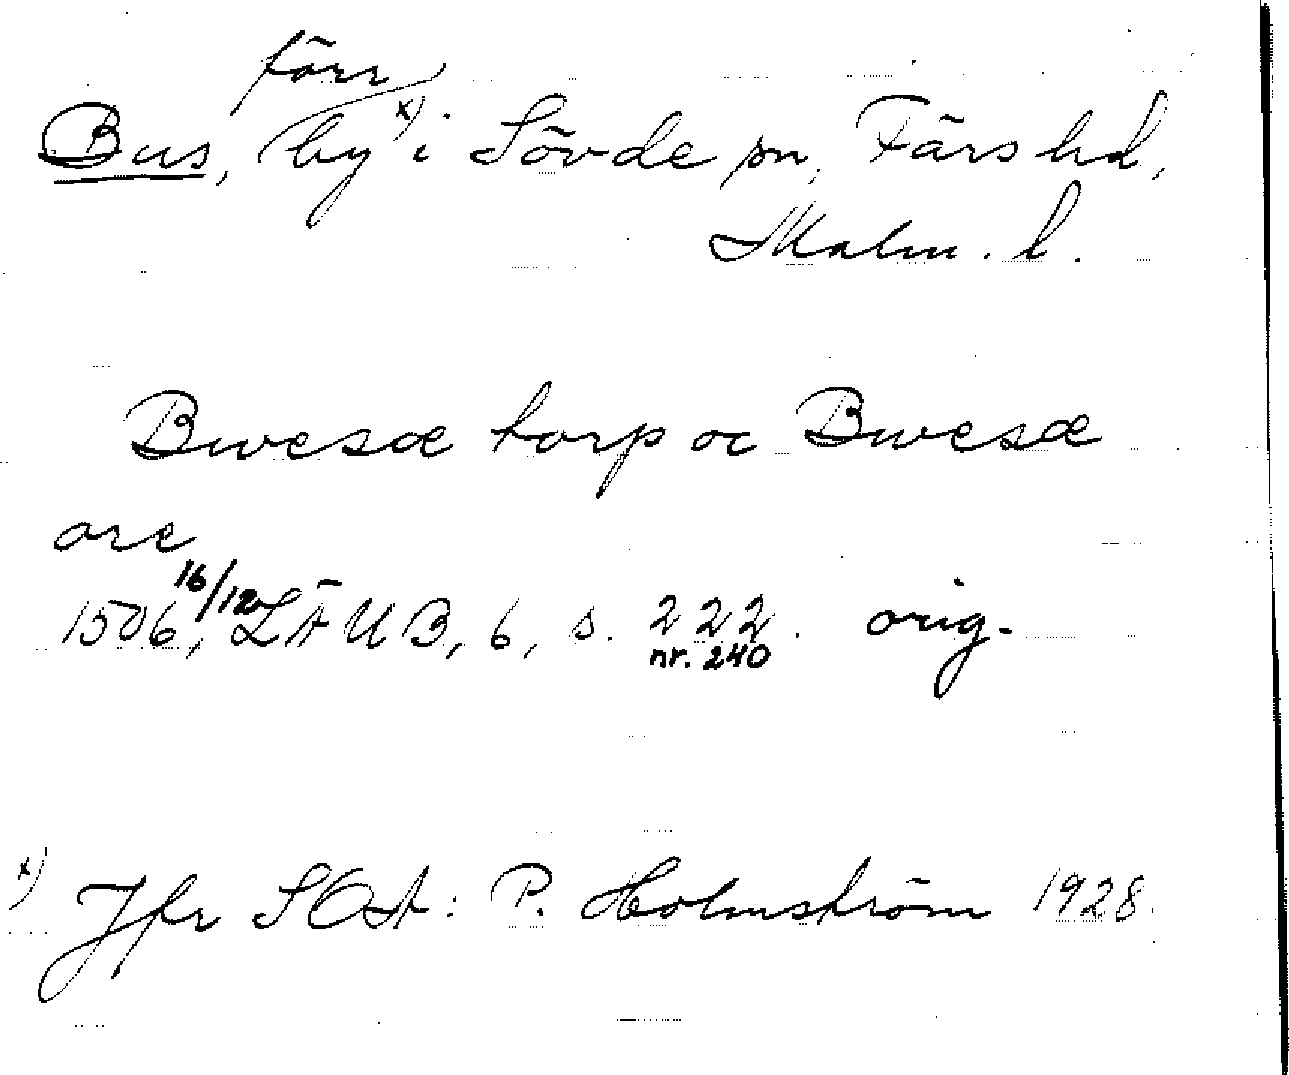 förr
Bus, by x) i Sövde sn, Färs hd,
Malm. l.
Bwesæ torp oc Bwesæ
are
1506 16/12, LÄUB, 6, s. 222. orig.
nr. 240
x) Jfr SOA: P. Holmström 1928.